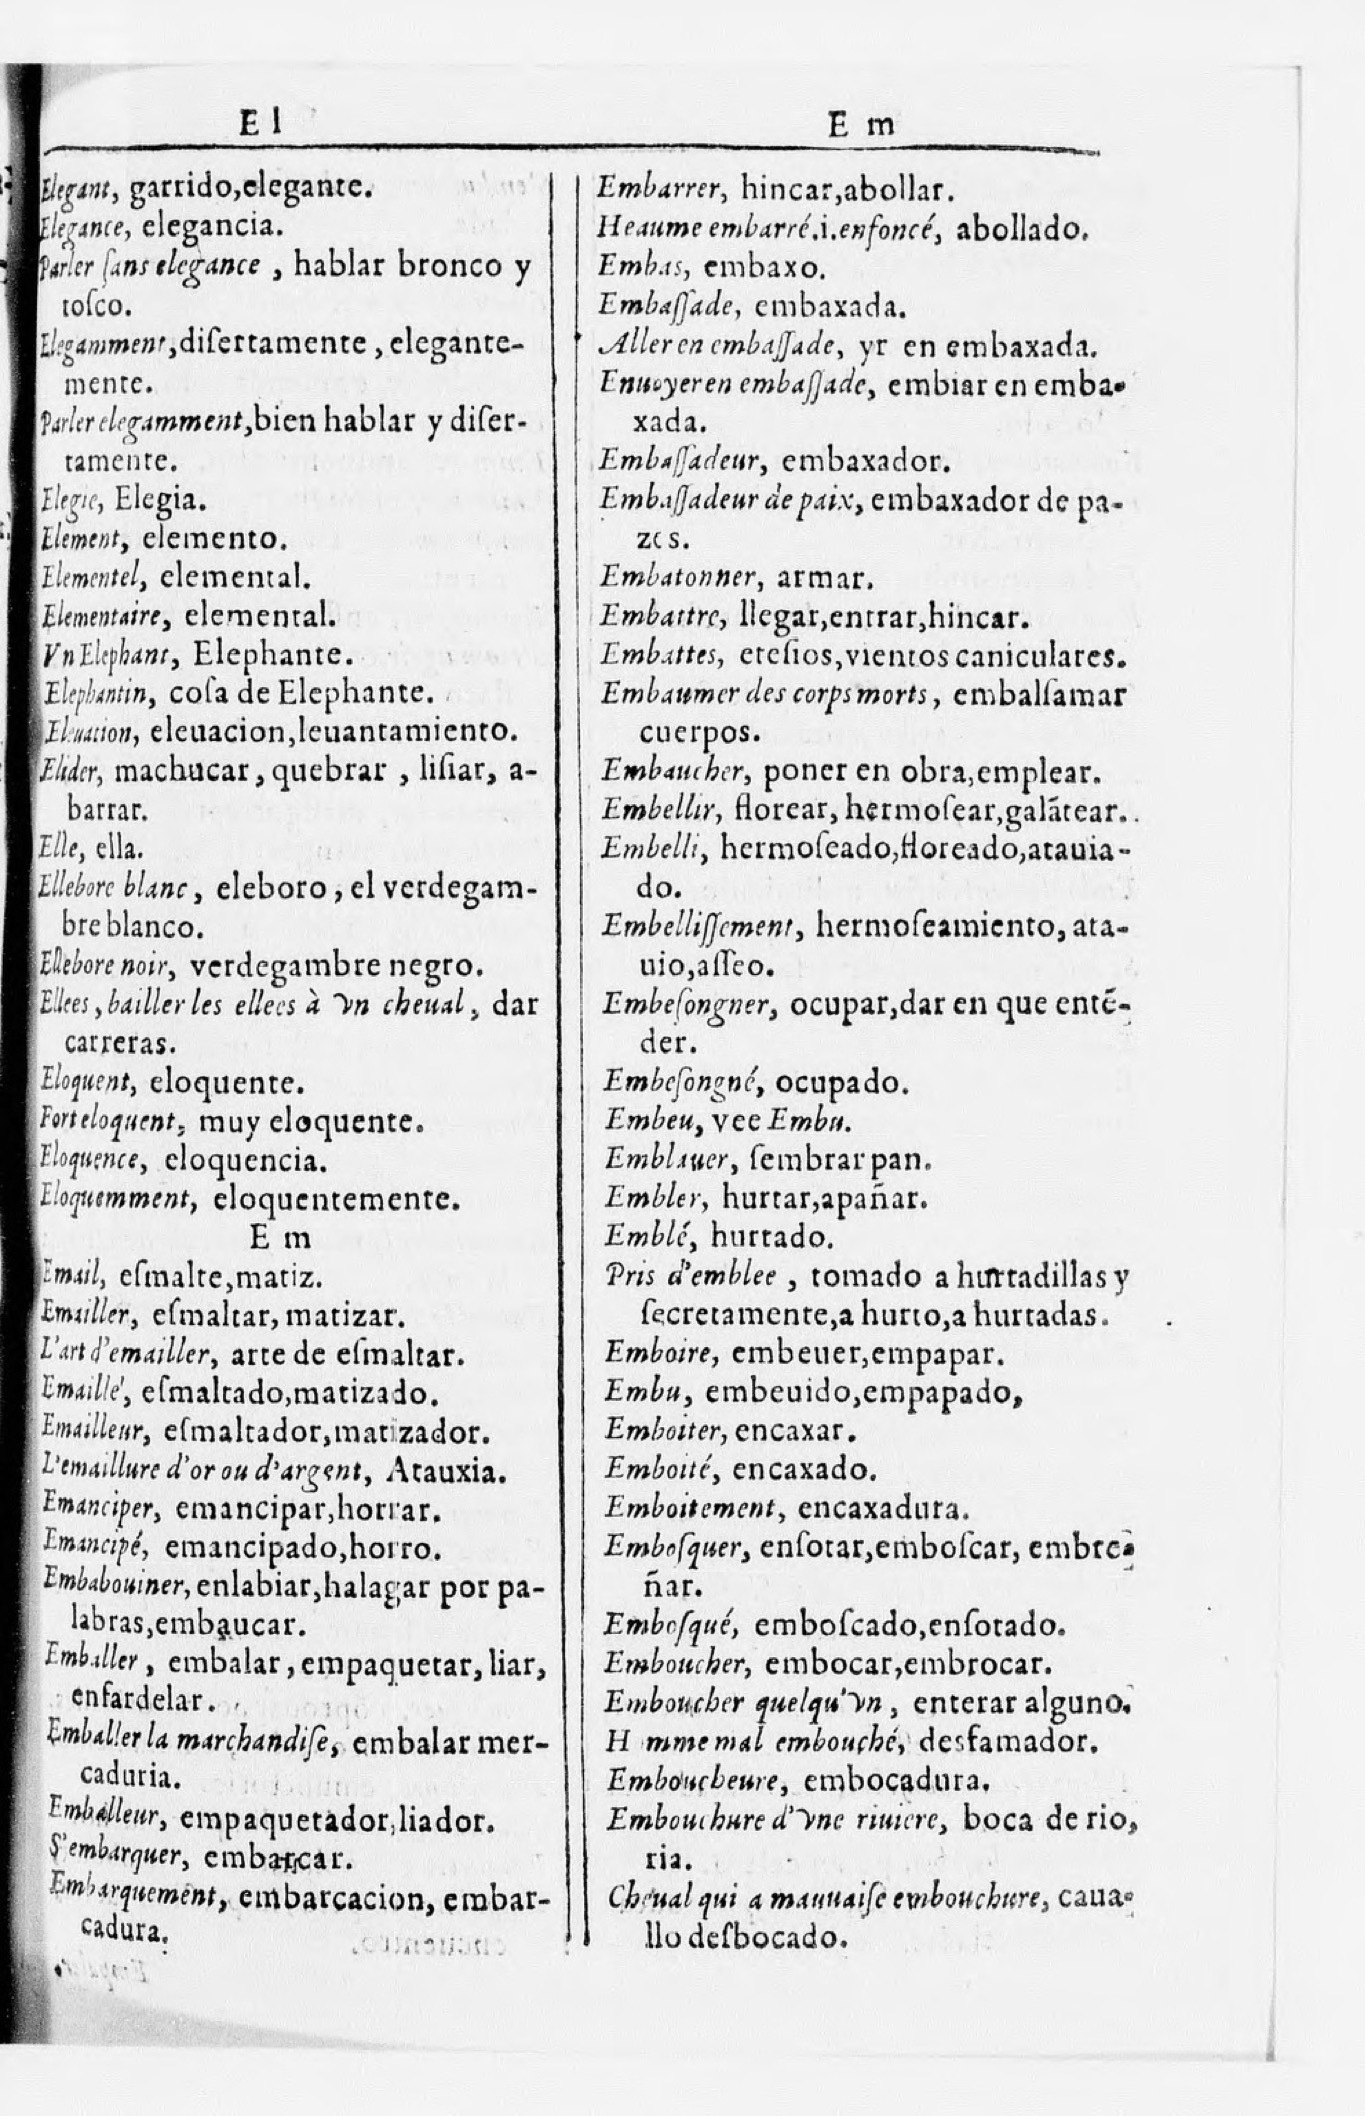 E l
Elegant, garrido,elegante.
Elegance, elegancia.
Parler ſans elegance , hablar bronco y
toſco.
Elegamment,diſertamente , elegante-
mente.
Parler elegamment,bien hablar y diſer-
tamente.
Elegie, Elegia.
Element, elemento.
Elementel, elemental.
Elementaire, elemental.
Vn Elephant, Elephante.
Elephantin, coſa de Elephante.
Eleuation, eleuacion,leuantamiento.
Elider, machucar, quebrar , liſiar, a-
barrar.
Elle, ella.
Ellebore blanc, eleboro, el verdegam-
bre blanco.
Ellebore noir, verdegambre negro.
Ellees, bailler les ellees à vn cheual, dar
carreras.
Eloquent, eloquente.
Fort eloquent, muy eloquente.
Eloquence, eloquencia.
Eloquemment, eloquentemente.
E m
Email, eſmalte,matiz.
Emailler, eſmaltar, matizar.
L'art d'emailler, arte de eſmaltar.
Emaillé, eſmaltado,matizado.
Emailleur, eſmaltador,matizador.
L'emaillure d'or ou d'argent, Atauxia.
Emanciper, emancipar,horrar.
Emancipé, emancipado,horro.
Embabouiner, enlabiar,halagar por pa-
labras,embaucar.
Emballer , embalar, empaquetar, liar,
enfardelar.
Emballer la marchandiſe, embalar mer-
caduria.
Emballeur, empaquetador,liador.
S'embarquer, embarcar.
Embarquement, embarcacion, embar-
cadura.
E m
Embarrer, hincar,abollar.
Heaume embarré.i.enfoncé, abollado.
Embas, embaxo.
Embaſſade, embaxada.
Aller en embaſſade, yr en embaxada.
Enuoyer en embaſſade, embiar en emba-
xada.
Embaſſadeur, embaxador.
Embaſſadeur de paix, embaxador de pa-
zes.
Embatonner, armar.
Embattre, llegar,entrar,hincar.
Embattes, eteſios,vientos caniculares.
Embaumer des corps morts, embalſamar
cuerpos.
Embaucher, poner en obra,emplear.
Embellir, florear, hermoſear,galātear.
Embelli, hermoſeado,floreado,atauia-
do.
Embelliſſement, hermoſeamiento, ata-
uio,aſſeo.
Embeſongner, ocupar,dar en que entē-
der.
Embeſongné, ocupado.
Embeu, vee Embu.
Emblauer, ſembrar pan.
Embler, hurtar,apañar.
Emblé, hurtado.
Pris d'emblee , tomado a hurtadillas y
ſecretamente,a hurto,a hurtadas.
Emboire, embeuer,empapar.
Embu, embeuido,empapado,
Emboiter, encaxar.
Emboité, encaxado.
Emboitement, encaxadura.
Emboſquer, enſotar,emboſcar, embre-
ñar.
Emboſqué, emboſcado,enſotado.
Emboucher, embocar,embrocar.
Emboucher quelqu'vn , enterar alguno.
H mme mal embouché, desfamador.
Emboucheure, embocadura.
Embouchure d'vne riuiere, boca de rio,
ria.
Cheual qui a mauuaiſe embouchure, caua-
llo deſbocado.